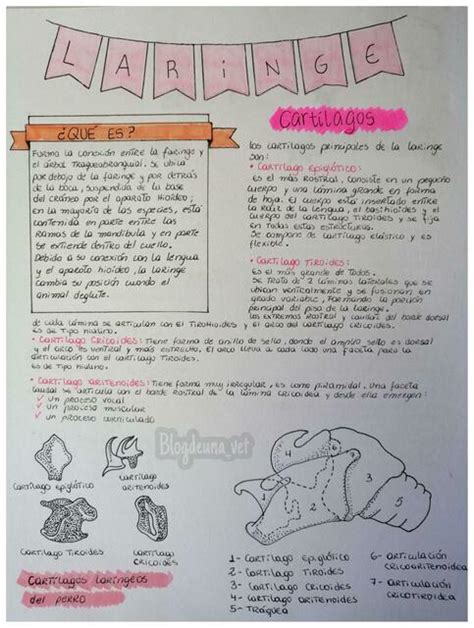 LARINGE
¿QUÉ ES?
Forma la conexión entre la faringe y
el árbol traqueobronquial. Se ubica
por debajo de la faringe y por detrás
de la boca, suspendida de la base
del cráneo por el aparato hioideo;
en la mayoría de las especies, está
contenida en parte entre las
ramas de la mandíbula y en parte
se extiende dentro del cuello.
Debido a su conexión con la lengua
y el aparato hioideo, la laringe
cambia su posición cuando el
animal deglute.
Cartílagos
Los cartílagos principales de la laringe
son:
• Cartílago Epiglótico:
Es el más rostral, consiste en un pequeño
cuerpo y una lámina grande en forma
de hoja. El cuerpo está insertado entre
la raíz de la lengua, el basihioides y el
cuerpo del cartílago tiroides y se fija
en todas estas estructuras.
Se compone de cartílago elástico y es
flexible.
• Cartílago Tiroides:
Es el más grande de todos.
Se trata de 2 láminas laterales que se
ubican ventralmente y se fusionan en
grado variable, formando la porción
principal del piso de la laringe.
Los extremos rostral y caudal del borde dorsal
de cada lámina se articulan con el tirohioides y el arco del cartílago cricoides.
Es de tipo hialino.
• Cartílago Cricoides: Tiene forma de anillo de sello, donde el amplio sello es dorsal
y el arco es ventral y más estrecho. El arco lleva a cada lado una faceta para la
articulación con el cartílago tiroides.
Es de tipo hialino.
• Cartílago Aritenoides: Tiene forma muy irregular, es como piramidal. Una faceta
caudal se articula con el borde rostral de la lámina cricoidea y desde ella emergen:
✓ un proceso vocal
✓ un proceso muscular
✓ un proceso corniculado
Blogdeuna_vet
Cartílago Epiglótico
Cartílago Aritenoides
Cartílago Tiroides
Cartílago Cricoides
Cartílagos laríngeos
del perro
1
2
3
4
5
6
7
1- Cartílago Epiglótico
2- Cartílago Tiroides
3- Cartílago Cricoides
4- Cartílago Aritenoides
5- Tráquea
6- Articulación
cricoaritenoidea
7- Articulación
cricotiroidea